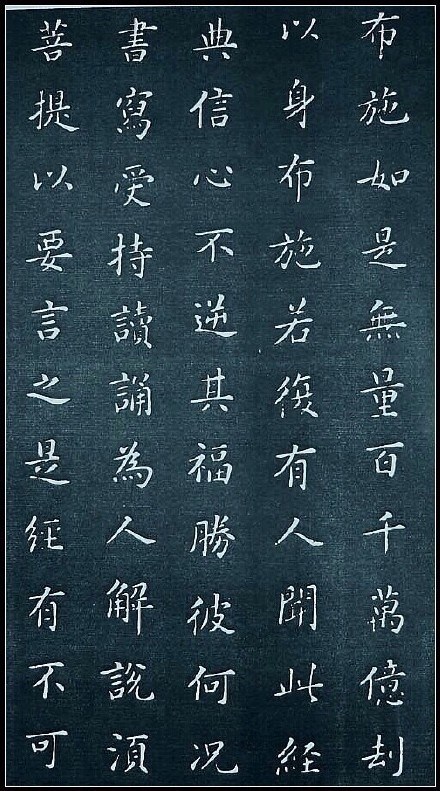 布施如是無量百千萬億刦
以身布施若復有人聞此経
典信心不逆其福勝彼何况
書寫受持讀誦為人解說須
菩提以要言之是経有不可